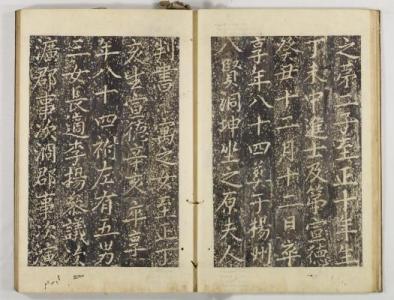 之二子至正十年生
丁未中進士及第宣德
癸丑十二月十二日卒
享年八十四葬于楊州
八賢洞坤坐之原夫人
判書之女至正丁
亥生宣德辛亥卒享
年八十四祔左有五男
三女長適李揚參議次
郡事次澗郡事次演